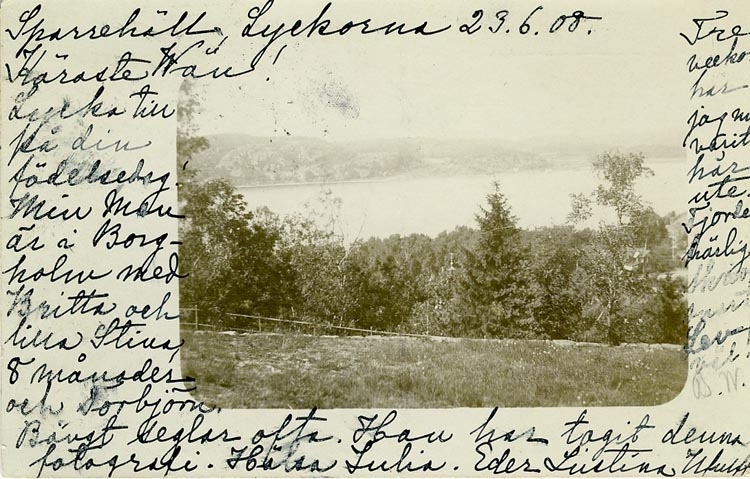 Sparrehäll, Lyckorna 23.6.08.
Käraste Wän!
Lycka till
på din
födelsedag!
Min Man
är i Borg-
holm med
Britta och
lilla Stina,
8 månader
och Torbjörn.
Bävst seglar ofta. Han har tagit denna
fotografi. Hälsa Julia. Eder Listina
Tre
veckor
har
jag nu
varit
här
ute.
Fjorde
härlig
Lev
väl!